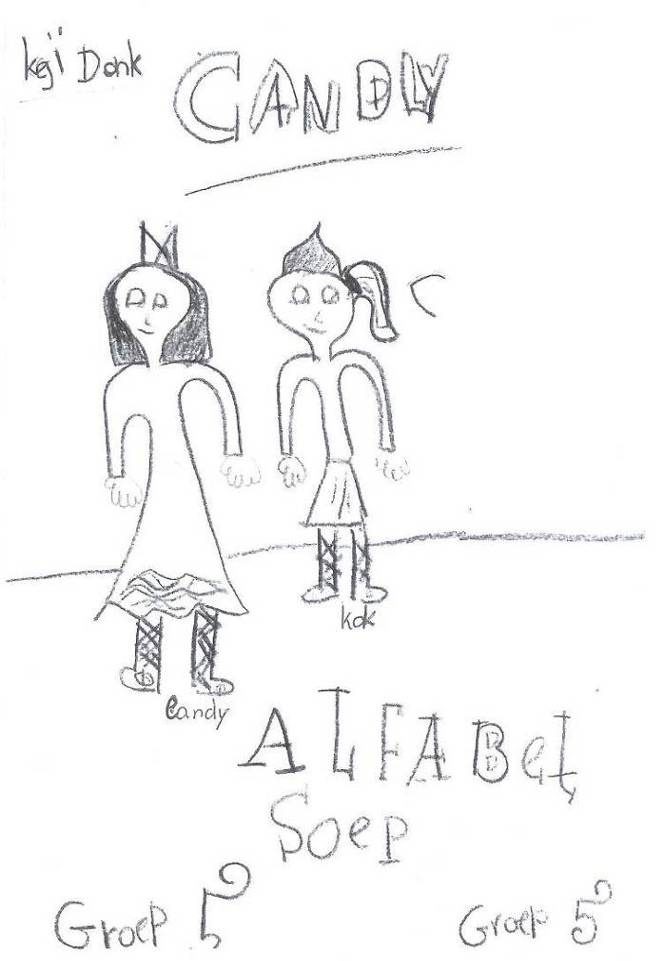 Donk
CANDY
kok
Candy
ALFABet
Soep
Groep 5
Groep 5